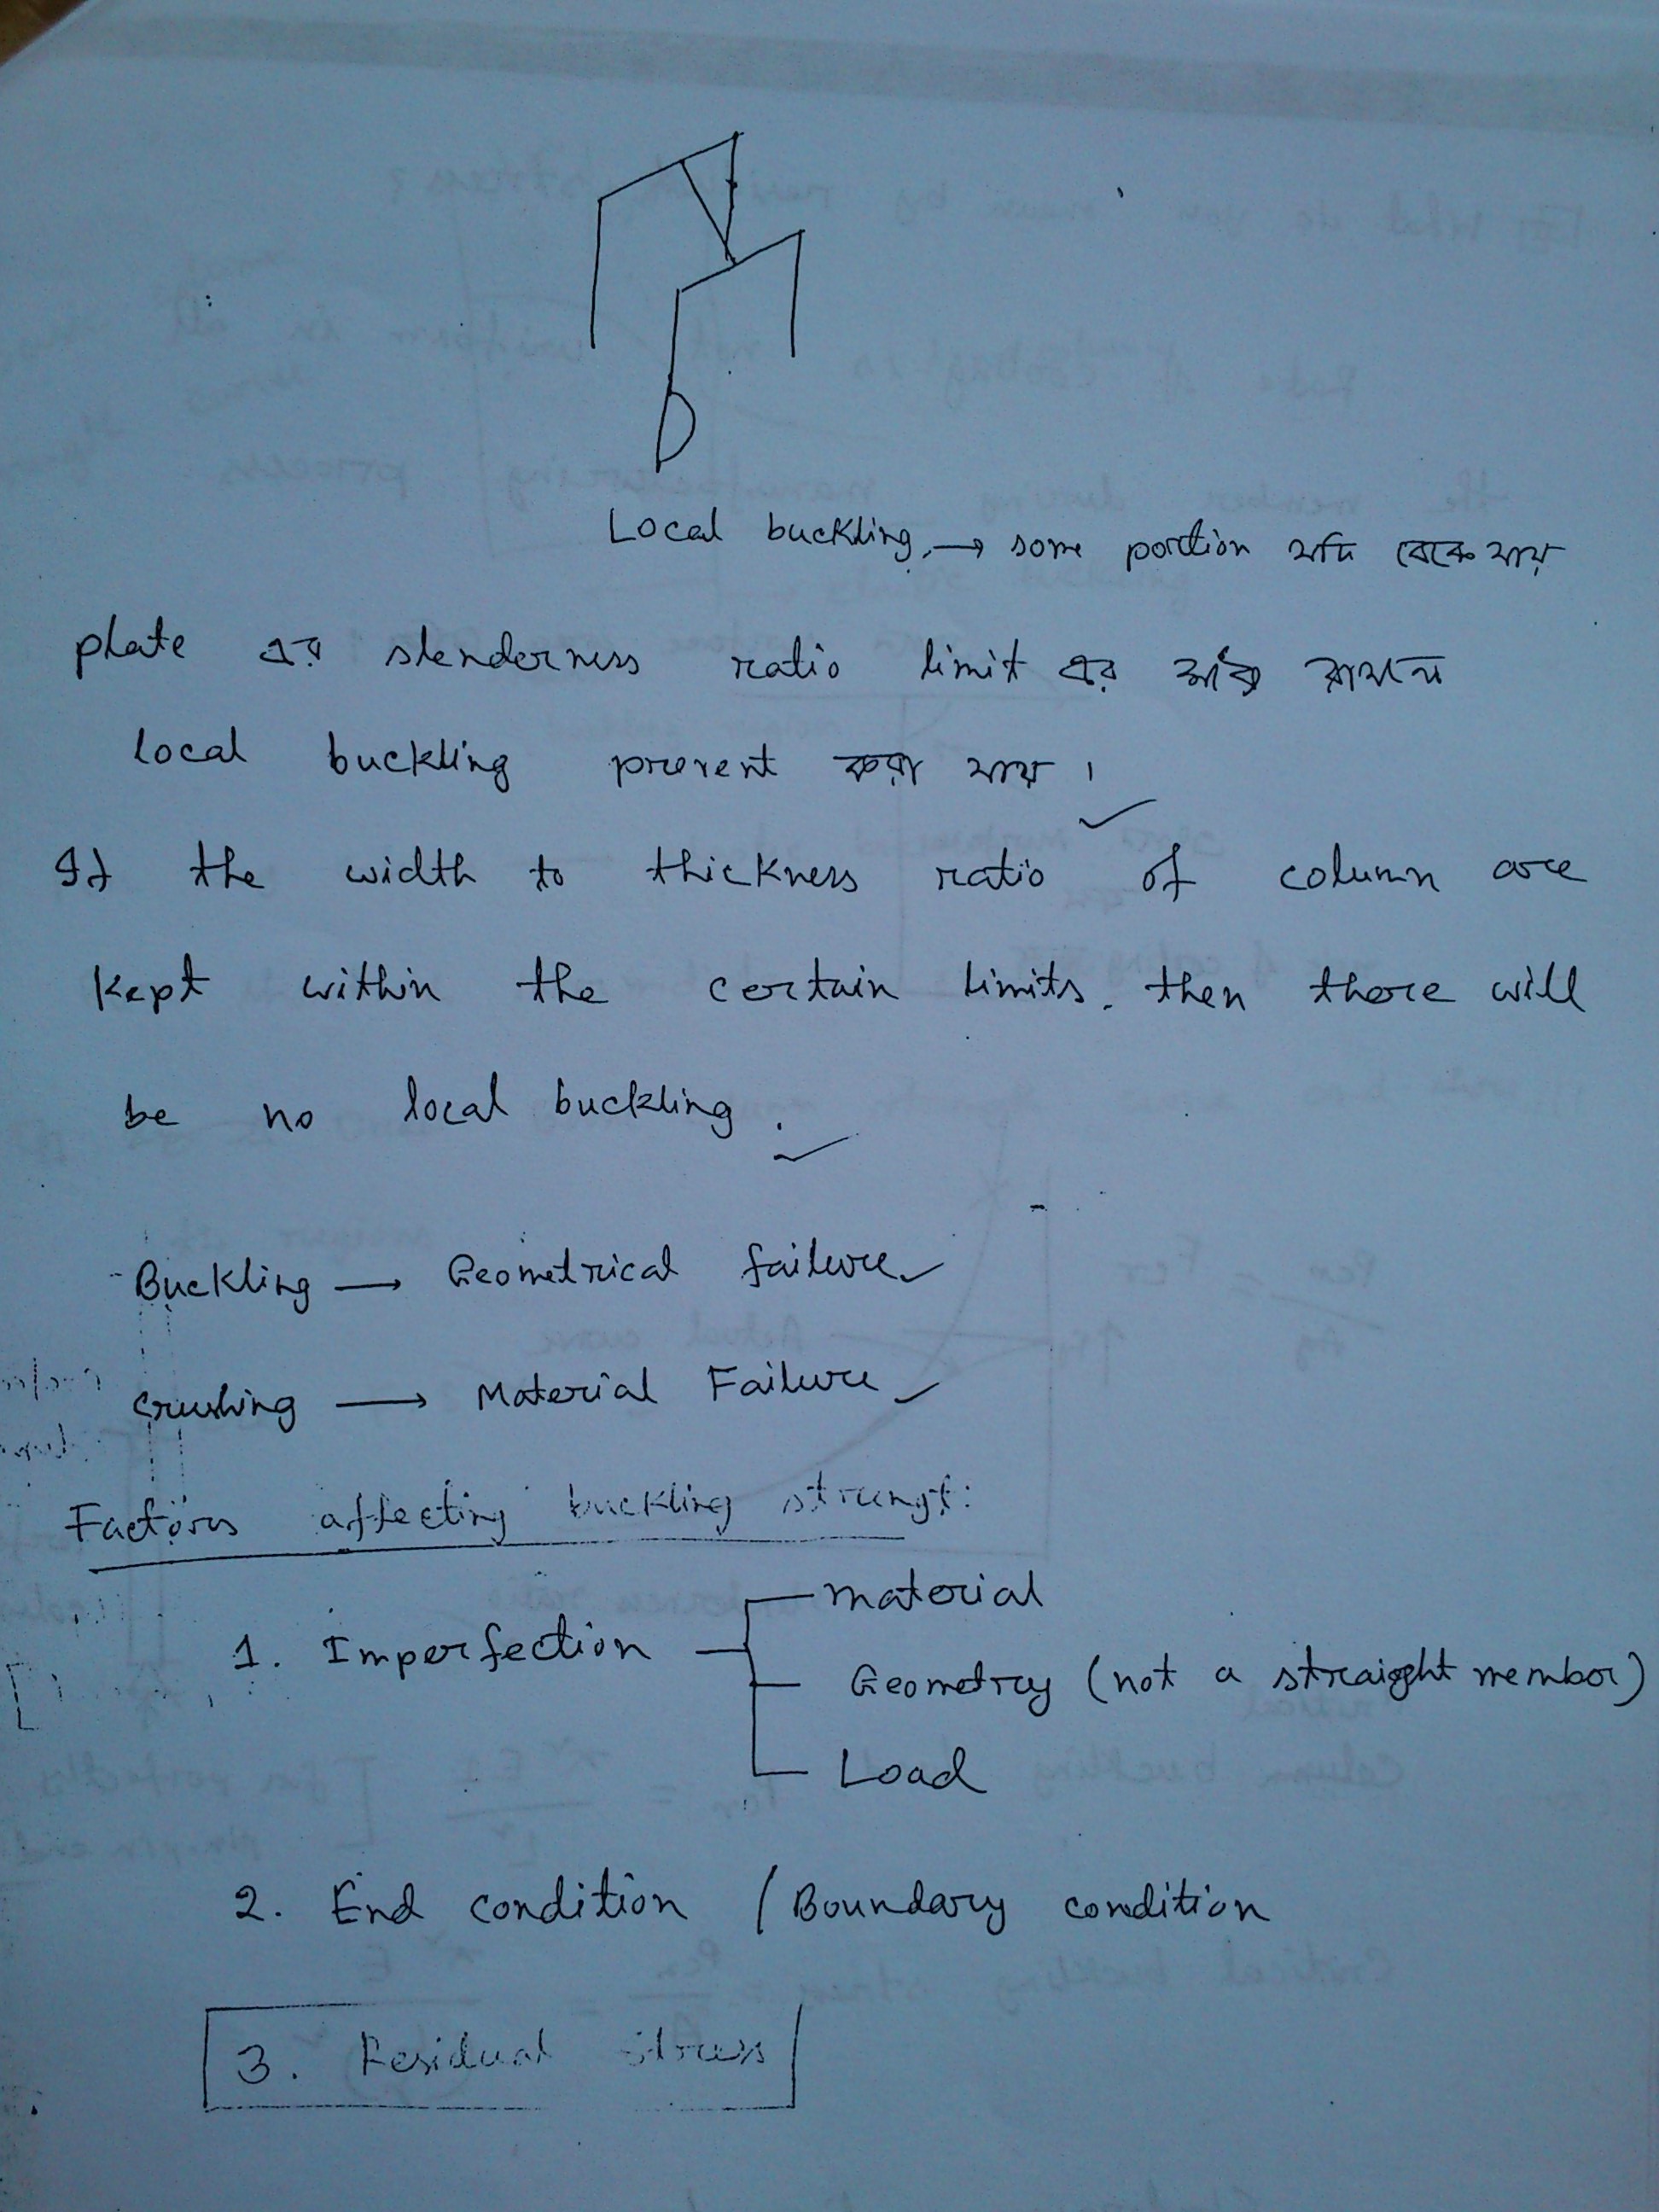 Local buckling → some portion যদি বেকে যায়
plate এর slenderness ratio limit এর মধ্যে রাখলে
local buckling prevent করা যায়।
If the width to thickness ratio of column are
kept within the certain limits. then there will
be no local buckling.
Buckling → Geometrical failure
Crushing → Material Failure
Factors affecting buckling strengt:
1. Imperfection
material
Geometry (not a straight member)
Load
2. End condition / Boundary condition
3. Residual stress